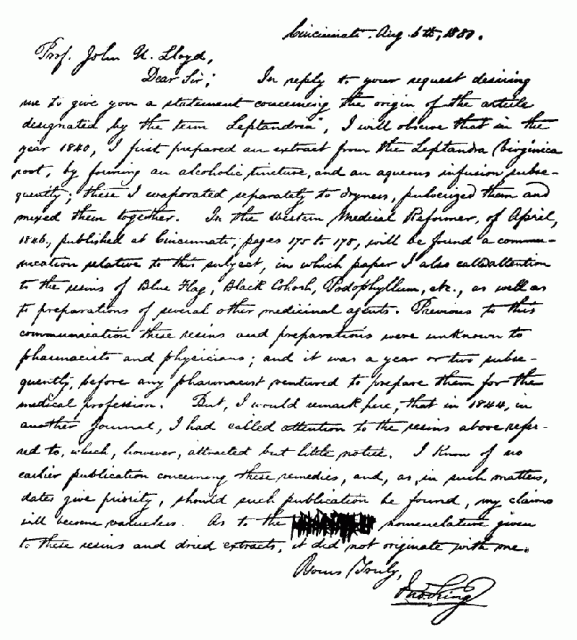 Cincinnati. Aug. 5th, 1880.
Prof. John U. Lloyd,
Dear Sir; In reply to your request desiring
me to give you a statement concerning the origin of the article
designated by the term "Leptandrin", I will observe that in the
year 1840, I first prepared an extract from the Leptandra Virginica
root, by forming an alcoholic tincture, and an aqueous infusion subse-
quently; these I evaporated separately to dryness, pulverized them and
mixed them together. In the Western Medical Reformer, of April,
1846, published at Cincinnati, pages 175 to 178, will be found a commu-
nication relative to this subject, in which paper I also called attention
to the resins of Blue Flag, Black Cohosh, Podophyllum, etc., as well as
to preparations of several other medicinal agents. Previous to this
communication these resins and preparations were unknown to
pharmacists and physicians; and it was a year or two subse-
quently, before any pharmacist ventured to prepare them for the
medical profession. But, I would remark here, that in 1844, in
another Journal, I had called attention to the resins above refer-
red to, which, however, attracted but little notice. I know of no
earlier publication concerning these remedies, and, as, in such matters,
dates give priority, should such publication be found, my claims
will become valueless. As to the nomenclature given
to these resins and dried extracts, it did not originate with me.
Yours Truly,
Jno. King